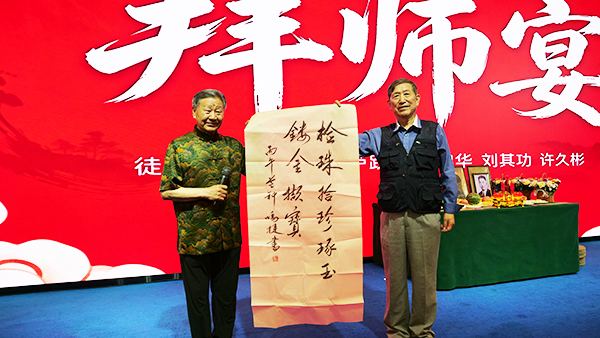 拜师宴
徒 华 刘其功 许久彬
拾珠拾珍琢玉
镂金撷宝
丙午
书